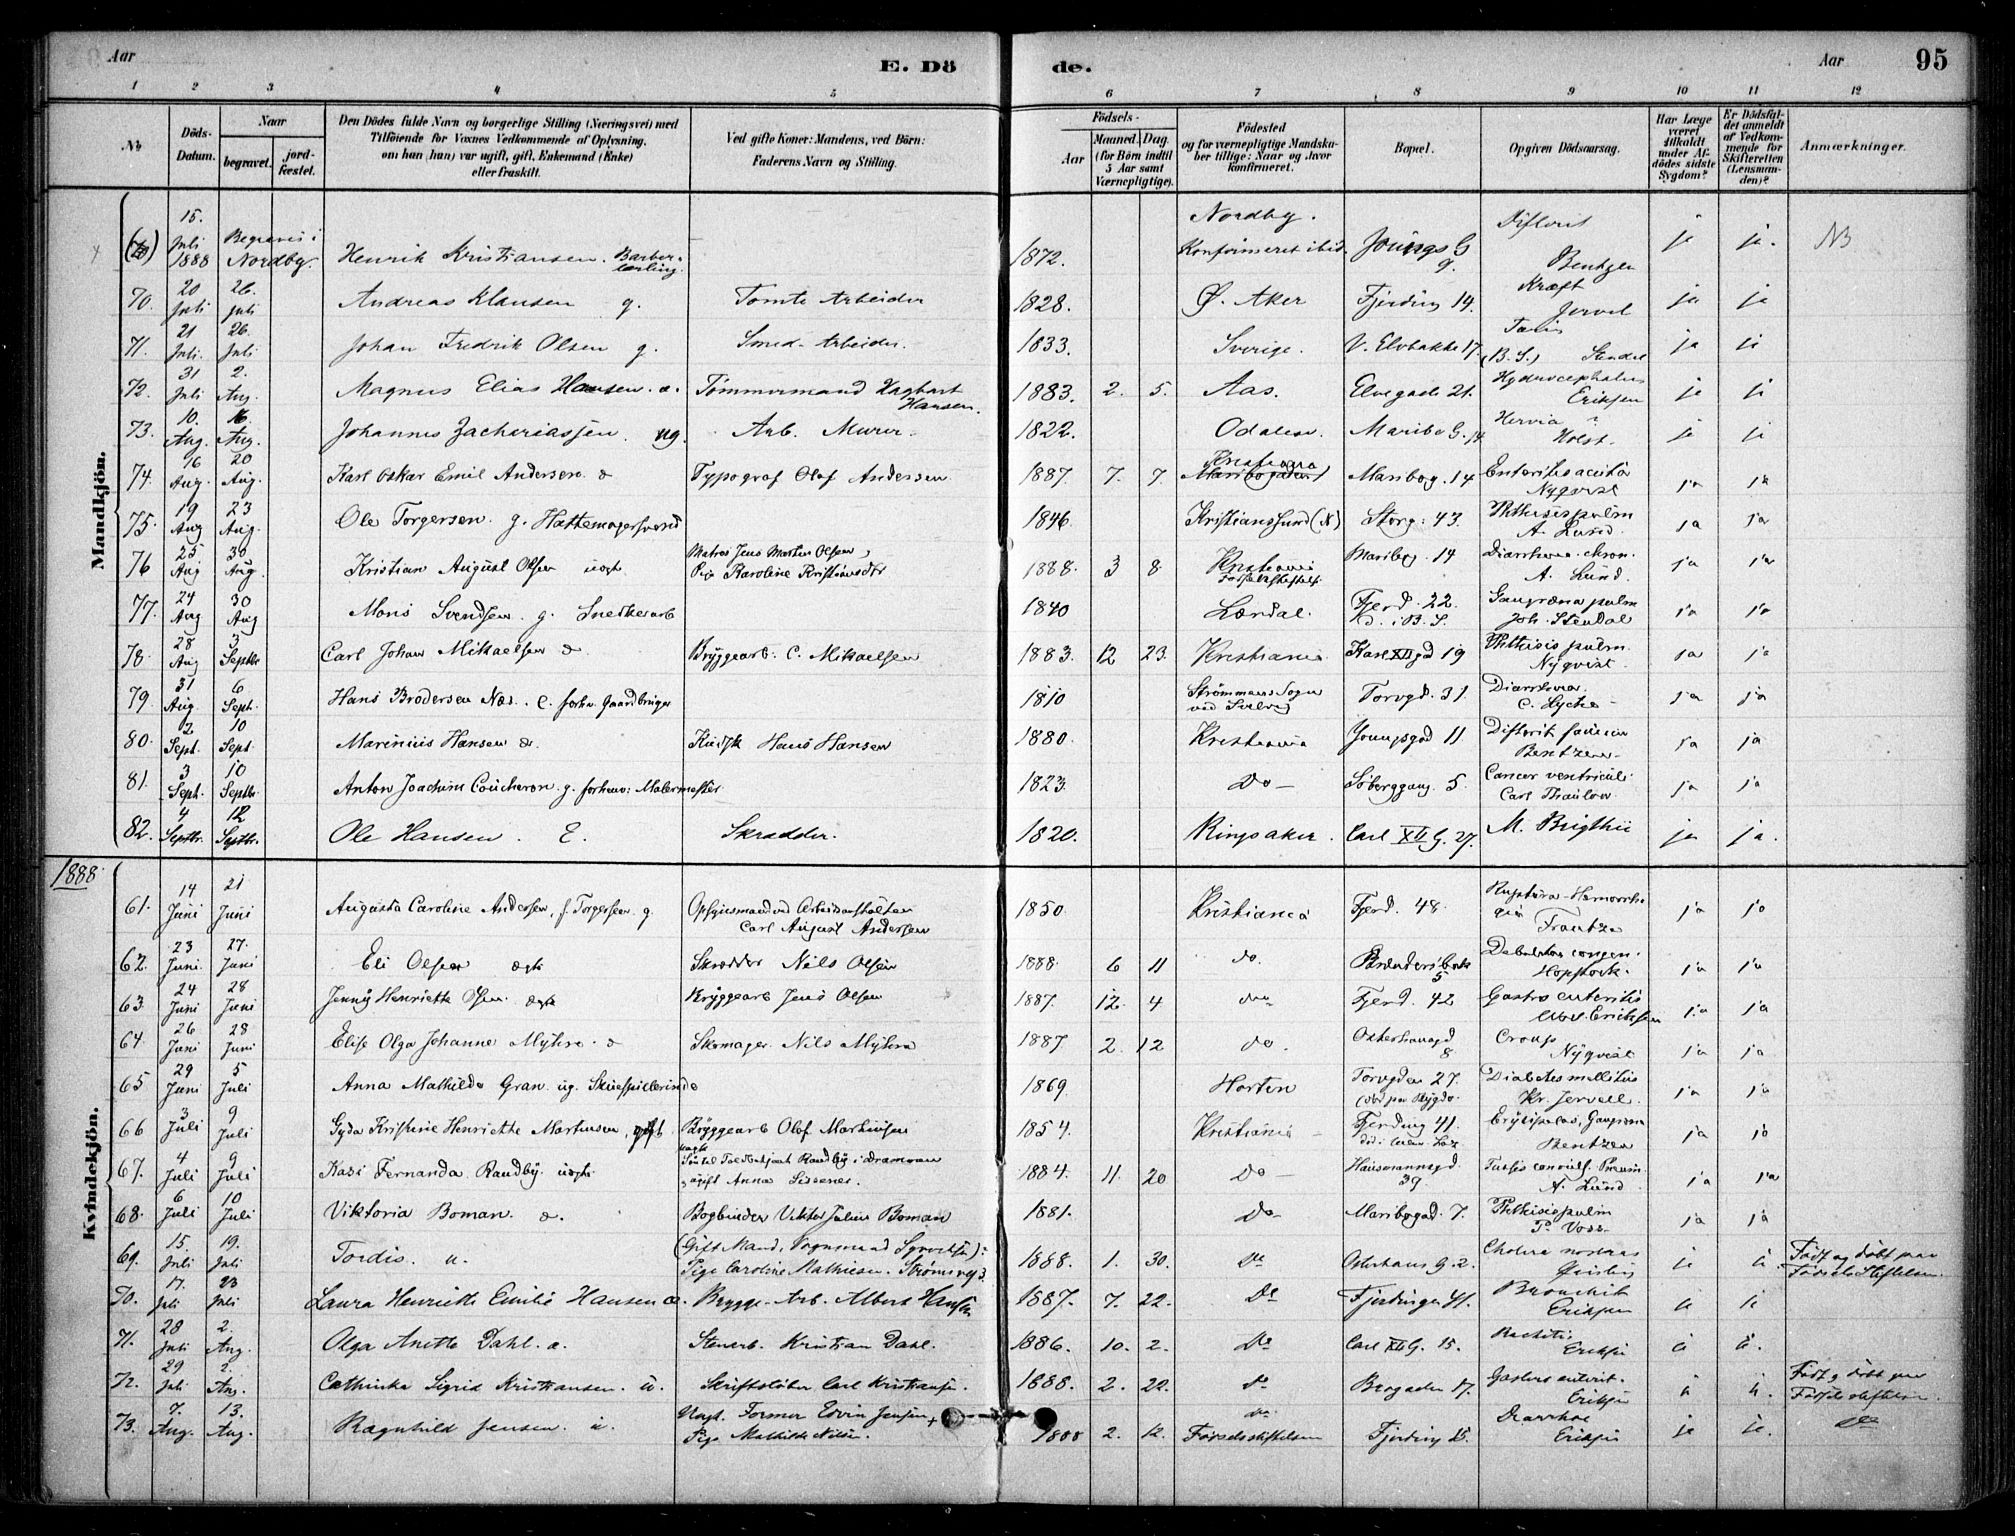 Aar E. Dö de. Aar 95
1 2 3 4 5 6 7 8 9 10 11 12
№
Döds-Datum.
Naar
begravet.
jord-fæstet.
Den Dödes fulde Navn og borgerlige Stilling (Næringsvei) med
Tilføiende for Voxnes Vedkommende af Oplysning,
om han (hun) var ugift, gift, Enkemand (Enke)
eller fraskilt.
Ved gifte Koner: Mandens, ved Börn:
Faderens Navn og Stilling.
Födsels-
Aar
Maaned. Dag.
(for Börn indtil
5 Aar samt
Værnepligtige).
Födested
og for værnepligtige Mandska-
ber tillige: Naar og hvor
konfirmeret.
Bopæl.
Opgiven Dödsaarsag.
Har Læge
været
tilkaldt
under Af-
dödes sidste
Sygdom?
Er Dödsfal-
det anmeldt
af Vedkom-
mende for
Skifteretten
(Lensman-
den)?
Anmærkninger.
Mandkjön.
15. Juli 1888 Begravet i Nordby. Henrik Kristiansen. Barber-lærling. 1872. Nordby. Konfirmeret ibid. Youngs G 9. Difterit Bentzen ja ja. NB
70. 20 Juli 26. Juli Andreas Klausen g. Tomte Arbeider 1828. Ø. Aker Fjerding 14. Kræft Jervel ja ja
71. 21 Juli. 26. Juli Johan Fredrik Olsen g. Smed-Arbeider. 1833. Sverige. V. Elvbakke 17. (B.S.) ja ja
72. 31 Juli 2. Aug. Magnus Elias Hansen. æ. Tømmermand Haghart Hansen. 1883. 2. 5. Aas. Elvegade 21. Hydrocephalus Eriksen ja ja
73. 10. Aug. 16 Aug. Johannes Zachariassen. ug. Arb. Murer. 1822. Odalen. Maribo G. 14 Hernia Holst. ja ja
74. 16 Aug. 20 Aug. Karl Oskar Emil Andersen æ Typograf Olaf Andersen 1887. 7. 7. Kristiania Maribog. 14 Enteritis acuta Nyqvist ja ja
75. 19 Aug 23 Aug. Ole Torgersen. g. Hattemagersvend 1846. Kristianssund (N) Storg: 43. Phthisis pulm A. Lund. ja ja
76 25 Aug 30 Aug. Kristian August Olsen uægte Matros Jens Martin Olsen, Pige Karoline Kristiansdtr 1888. 3 8. Kristiania Fødselsstiftels. Maribog. 14 Diarrhoea chron. A. Lund. ja ja
77. 24 Aug 30 Aug Mons Svendsen. g. Snedkerarb 1840 Lærdal. Fjerd. 22. d. i B. S. Gangræna pulm Joh. Stendal ja ja
78. 28 Aug 3 Septbr Carl Johan Mikaelsen æ Bryggearb. C. Mikaelsen 1883. 12 23. Kristiania Karl XII gd 19 Phthisis pulm. Nyqvist. ja ja
79. 31 Aug. 6 Sept. Hans Brodersen Næs. E. forhv. Gaardbruger 1810 Strømmens Sogn ved Svelvig Torvgd. 31. Diarrhoea. ja ja
80. 2 Sept. 10 Sept. Marinius Hansen æ. Kudsk Hans Hansen 1880. Kristiania Youngsgad 11 Difterit faucium Bentzen ja ja
81. 3 Sept. 10 Septbr Anton Joachim Coucheron. g. forhenv: Malermester 1823. Do — Soberggang. 5. Cancer ventriculi Carl Thaulow ja ja
82. 4 Septbr. 12 Septbr. Ole Hansen. E. Skrædder. 1820. Ringsaker. Carl XII G. 27. M. Brigthii ja ja.
1888
Kvindekjön.
61. 14 Juni 21 Juni Augusta Caroline Andersen, f. Torgersen. g. Opsynsmand ved Arbeidsanstalten Carl August Andersen 1850. Kristiania Fjerd. 48. Ruptura-Hæmorrhagia Frantzen ja ja
62. 23 Juni. 27. Juni Eli Olsen ægte Skrædder Nils Olsen 1888. 6 11 do. Brændersbak 5 Debilitas congen. Hopstock. ja ja
63. 24 Juni 28 Juni Jenny Henriette Olsen. ægte Bryggearb Jens Olsen 1887. 12. 4 do. Fjerd. 42 Gastro enteritis Ericksen ja ja
64. 26 Juni 28 Juni Elise Olga Johanne Myhre æ Skomager. Nils Myhre 1887 2. 12 do. Osterhausgd 8. Croup Nyqvist ja ja
65 29 Juni 5 Juli Anna Mathilde Gran. ug. Skuespillerinde 1869. Horten Torvgden 27. død paa Bygdø. Diabetes mellitus Kr. Jervell. ja ja
66 3 Juli 9 Juli Gyda Kristine Henriette Martinsen, gift Bryggearb Olof Martinsen 1854. Kristiania — Fjerding 41. Erysipelas, Gangræna Bentzen ja ja
67. 4 Juli 9 Juli Kasi Fernanda Randby. uægte Toldbetjent Randby i Drammen ugift Anna Sissener. 1884. 11. 20 Do — Hausmannsgd. 39. Tussis convuls. Pneum. A. Lund. ja ja
68. 6 Juli 10 Juli Viktoria Boman. æ. Bogbinder Viktor Julius Boman 1881. Do Maribogad. 7. Phthisis pulm P. Voss. ja ja
69. 15. Juli 19. Juli Tordis. u. (Gift Mand, Vognmand Syvertsen): Pige Caroline Mathiesen. Strømsvej 3. 1888. 1. 30. Do Osterhaus G. 2. Cholera nostras Qvisling ja ja Født og døbt paa Fødselsstiftelsen.
70. 17. Juli 23 Juli Laura Henriette Emilie Hansen æ. Brygge-Arb. Albert Hansen 1887. 7. 22. Do Fjerdingen 41. Bronchit Eriksen ja ja
71. 28 Juli 2. Aug. Olga Anette Dahl. æ. Stenarb. Kristian Dahl. 1886. 10. 2. Do Carl XII G. 15. Rachitis Eriksen ja ja.
72. 29 Juli 2. Aug. Cathinka Sigrid Kristiansen. u. Skriftstøber Carl Kristiansen. 1888. 2. 22. Do Brogaden 17. Gastro enterit. Eriksen ja ja. Født og døbt paa Fødselsstiftelsen.
73. 7. Aug. 13. Aug. Ragnhild Jensen. u. Ungk. Former Edvin Jensen + Pige Mathilde Nilsen. 1888 2. 12. do Fødselsstiftelsen Fjerding 15. Diarrhoe Eriksen ja ja. do